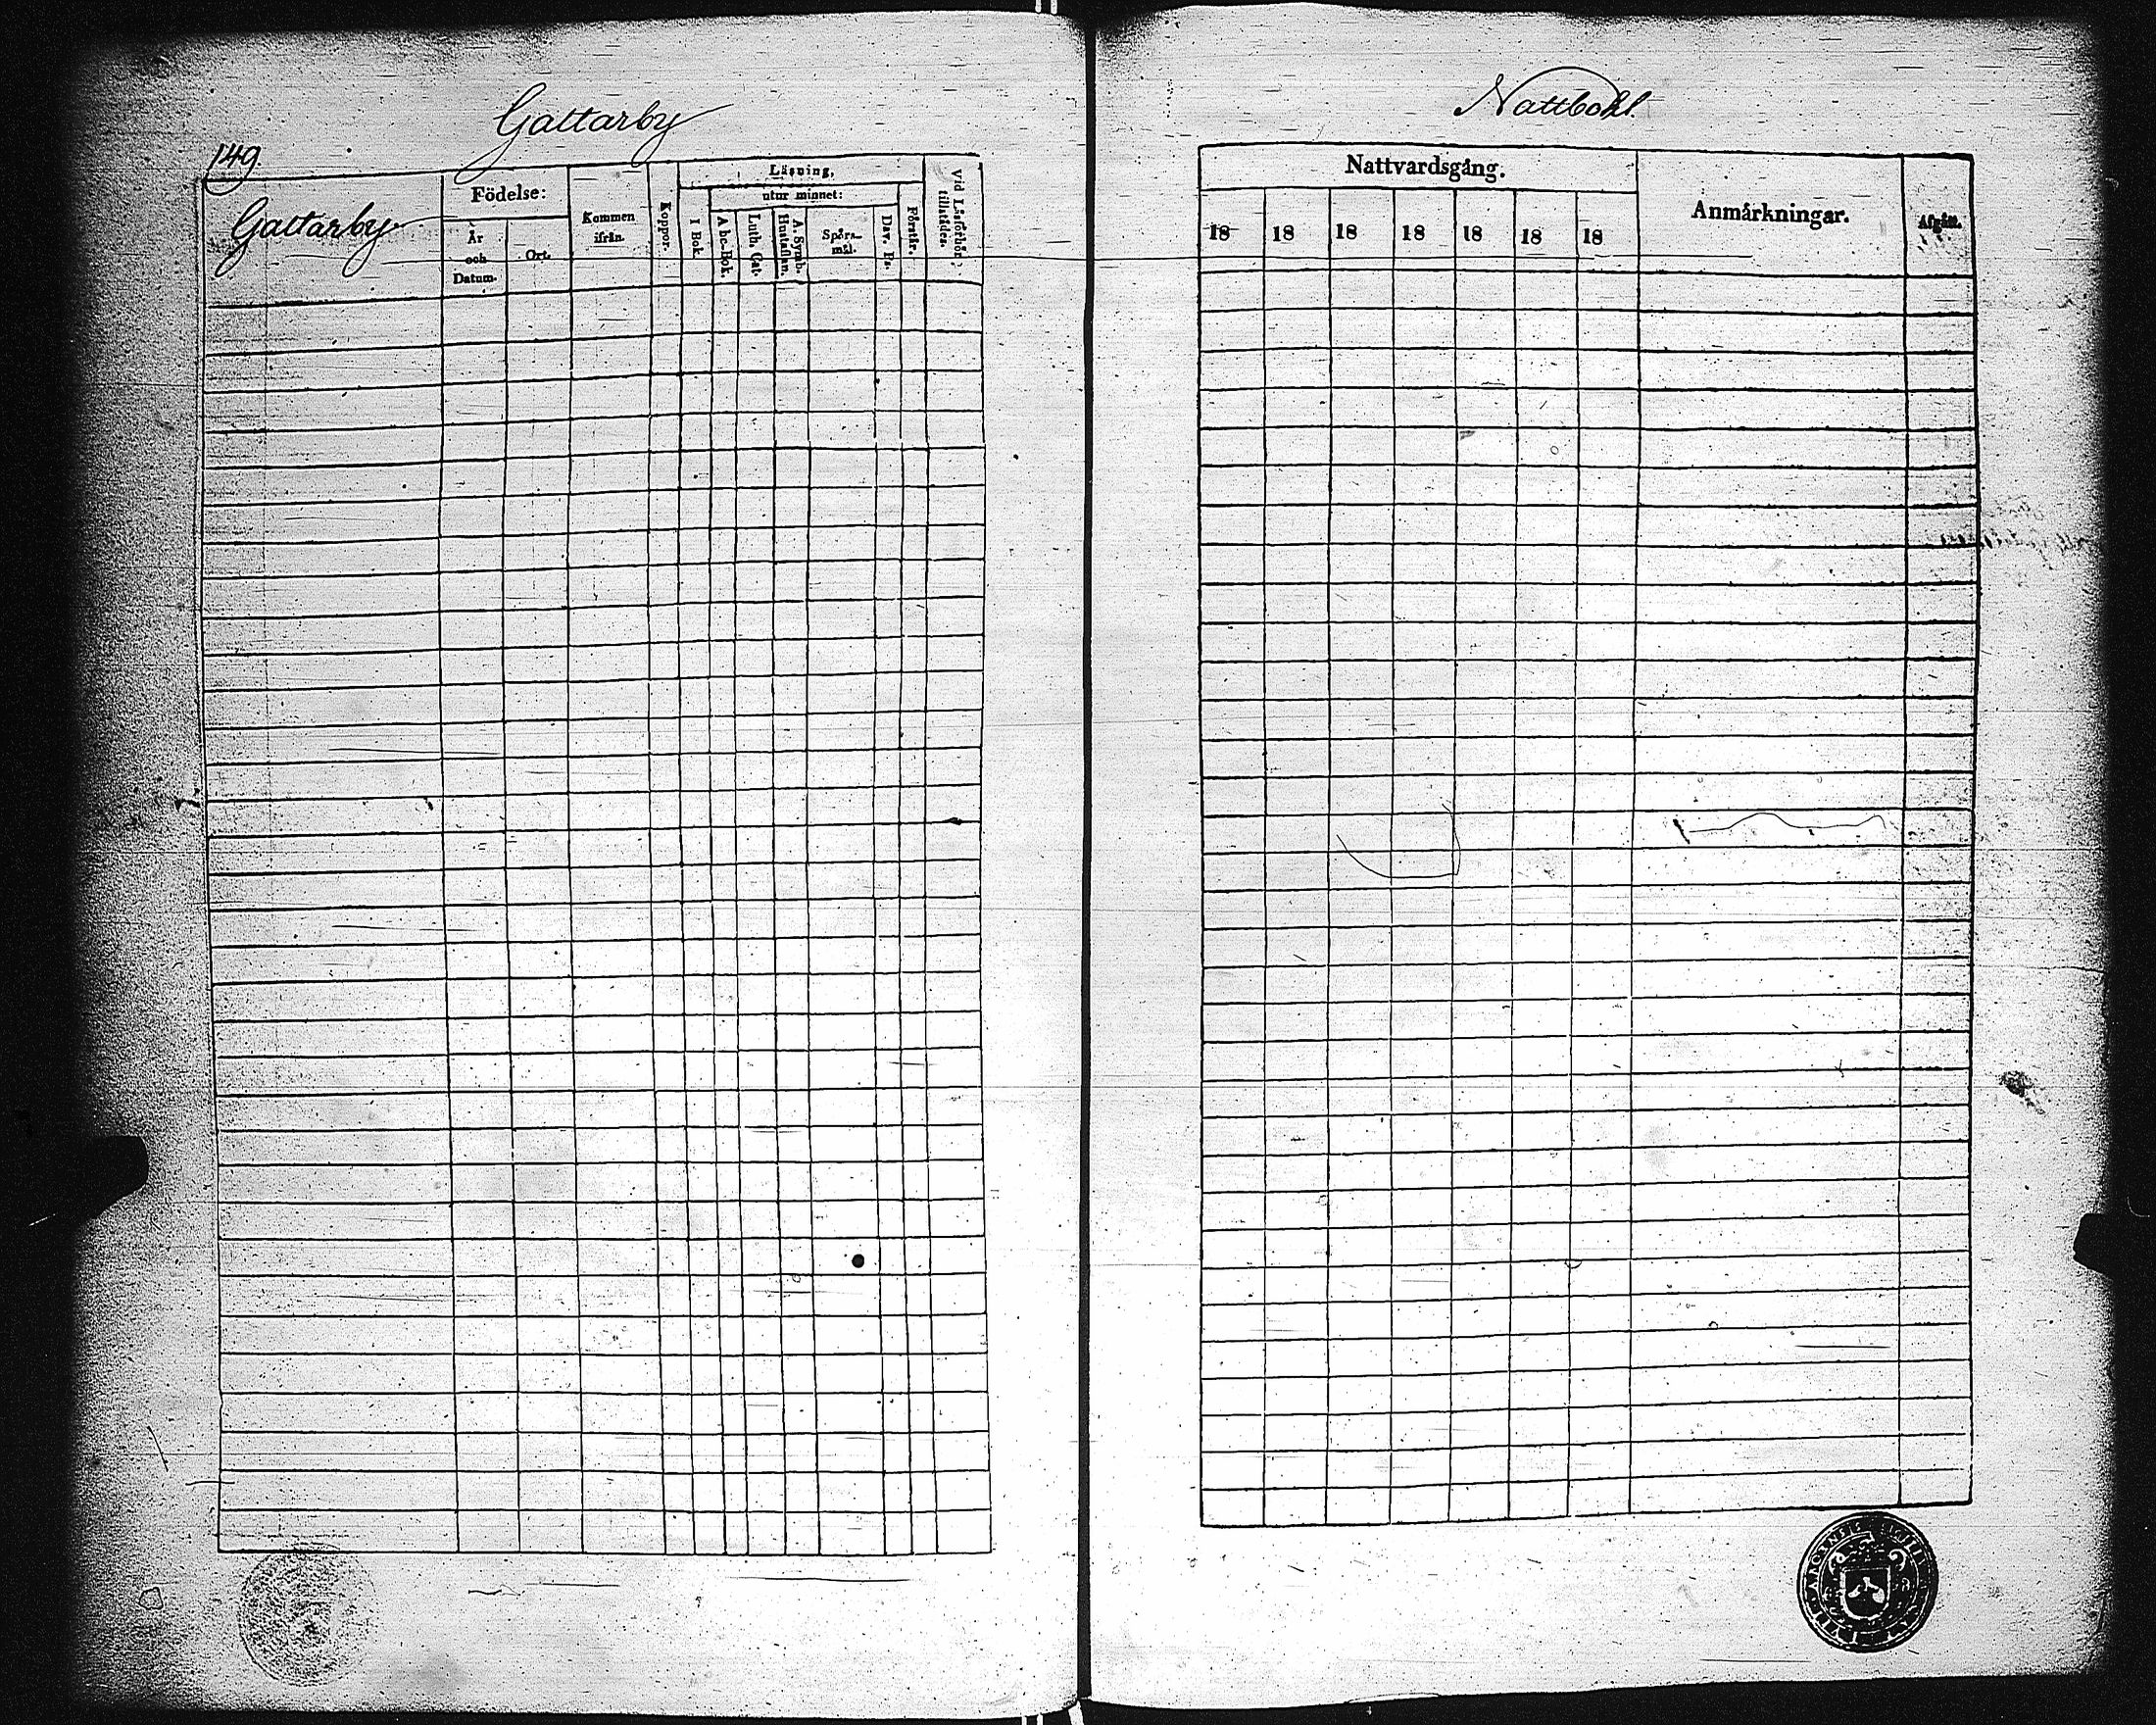 Gattarby
149.
Gattarby
Födelse:
År och Datum.
Ort.
Kommen ifrån.
Koppor.
Läsning,
utur minnet:
I Bok.
Abc-Bok.
Luth. Cat.
A. Symb. Hustaflan.
Spörsmål.
Dav. Ps.
Förstår.
Vid Läsförhör tillstädes.
Nattbohl.
Nattvardsgång.
18 18 18 18 18 18 18
Anmärkningar.
Afgått.